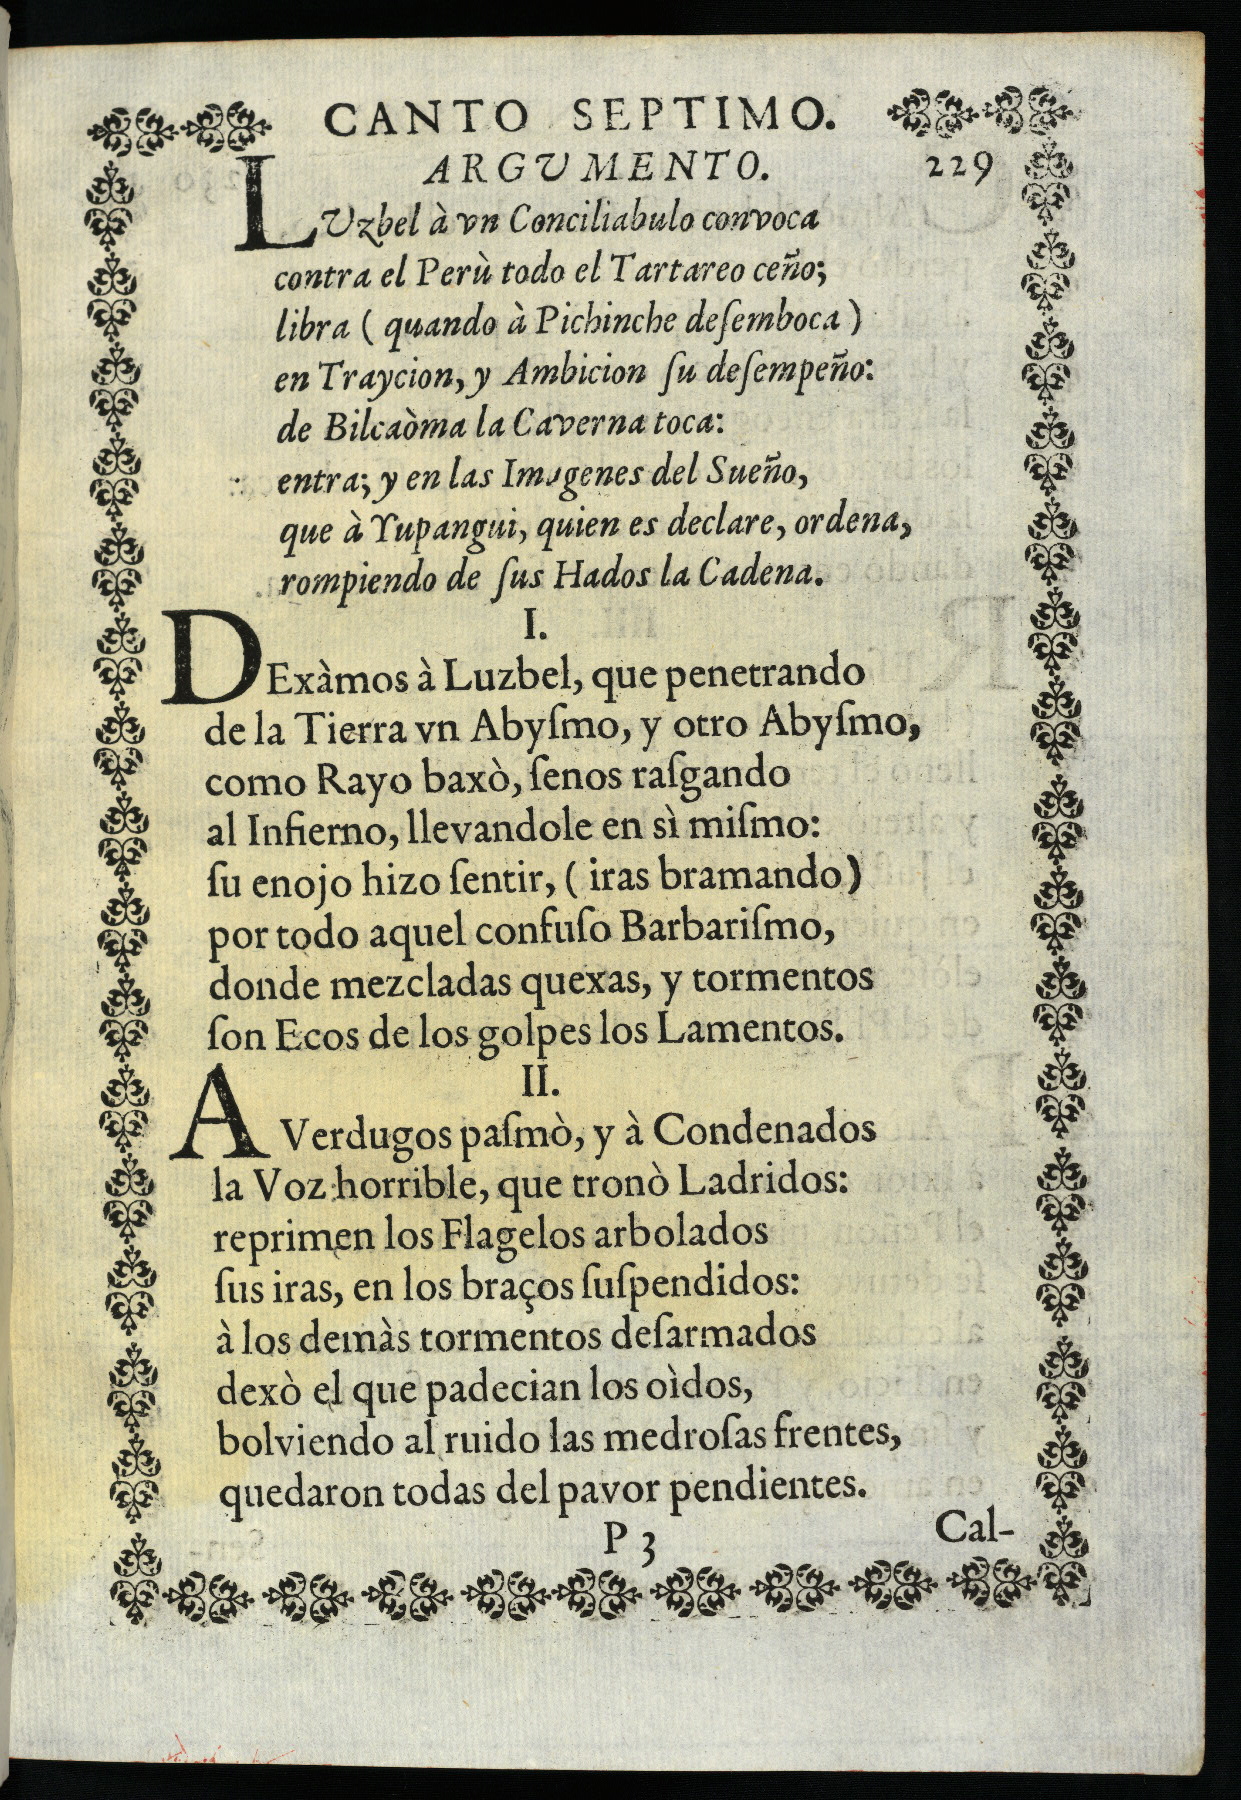 CANTO SEPTIMO.
ARGUMENTO. 229
LUzbel à vn Conciliabulo convoca
contra el Perù todo el Tartareo ceño;
libra ( quando à Pichinche deſemboca )
en Traycion, y Ambicion ſu deſempeño:
de Bilcaòma la Caverna toca:
entra; y en las Imagenes del Sueño,
que à Yupangui, quien es declare, ordena,
rompiendo de ſus Hados la Cadena.
I.
DExàmos à Luzbel, que penetrando
de la Tierra vn Abyſmo, y otro Abyſmo,
como Rayo baxò, ſenos raſgando
al Infierno, llevandole en sì miſmo:
ſu enojo hizo ſentir, ( iras bramando)
por todo aquel confuſo Barbariſmo,
donde mezcladas quexas, y tormentos
ſon Ecos de los golpes los Lamentos.
II.
A Verdugos paſmò, y à Condenados
la Voz horrible, que tronò Ladridos:
reprimen los Flagelos arbolados
ſus iras, en los braços ſuſpendidos:
à los demàs tormentos deſarmados
dexò el que padecian los oìdos,
bolviendo al ruido las medroſas frentes,
quedaron todas del pavor pendientes.
P 3 Cal-